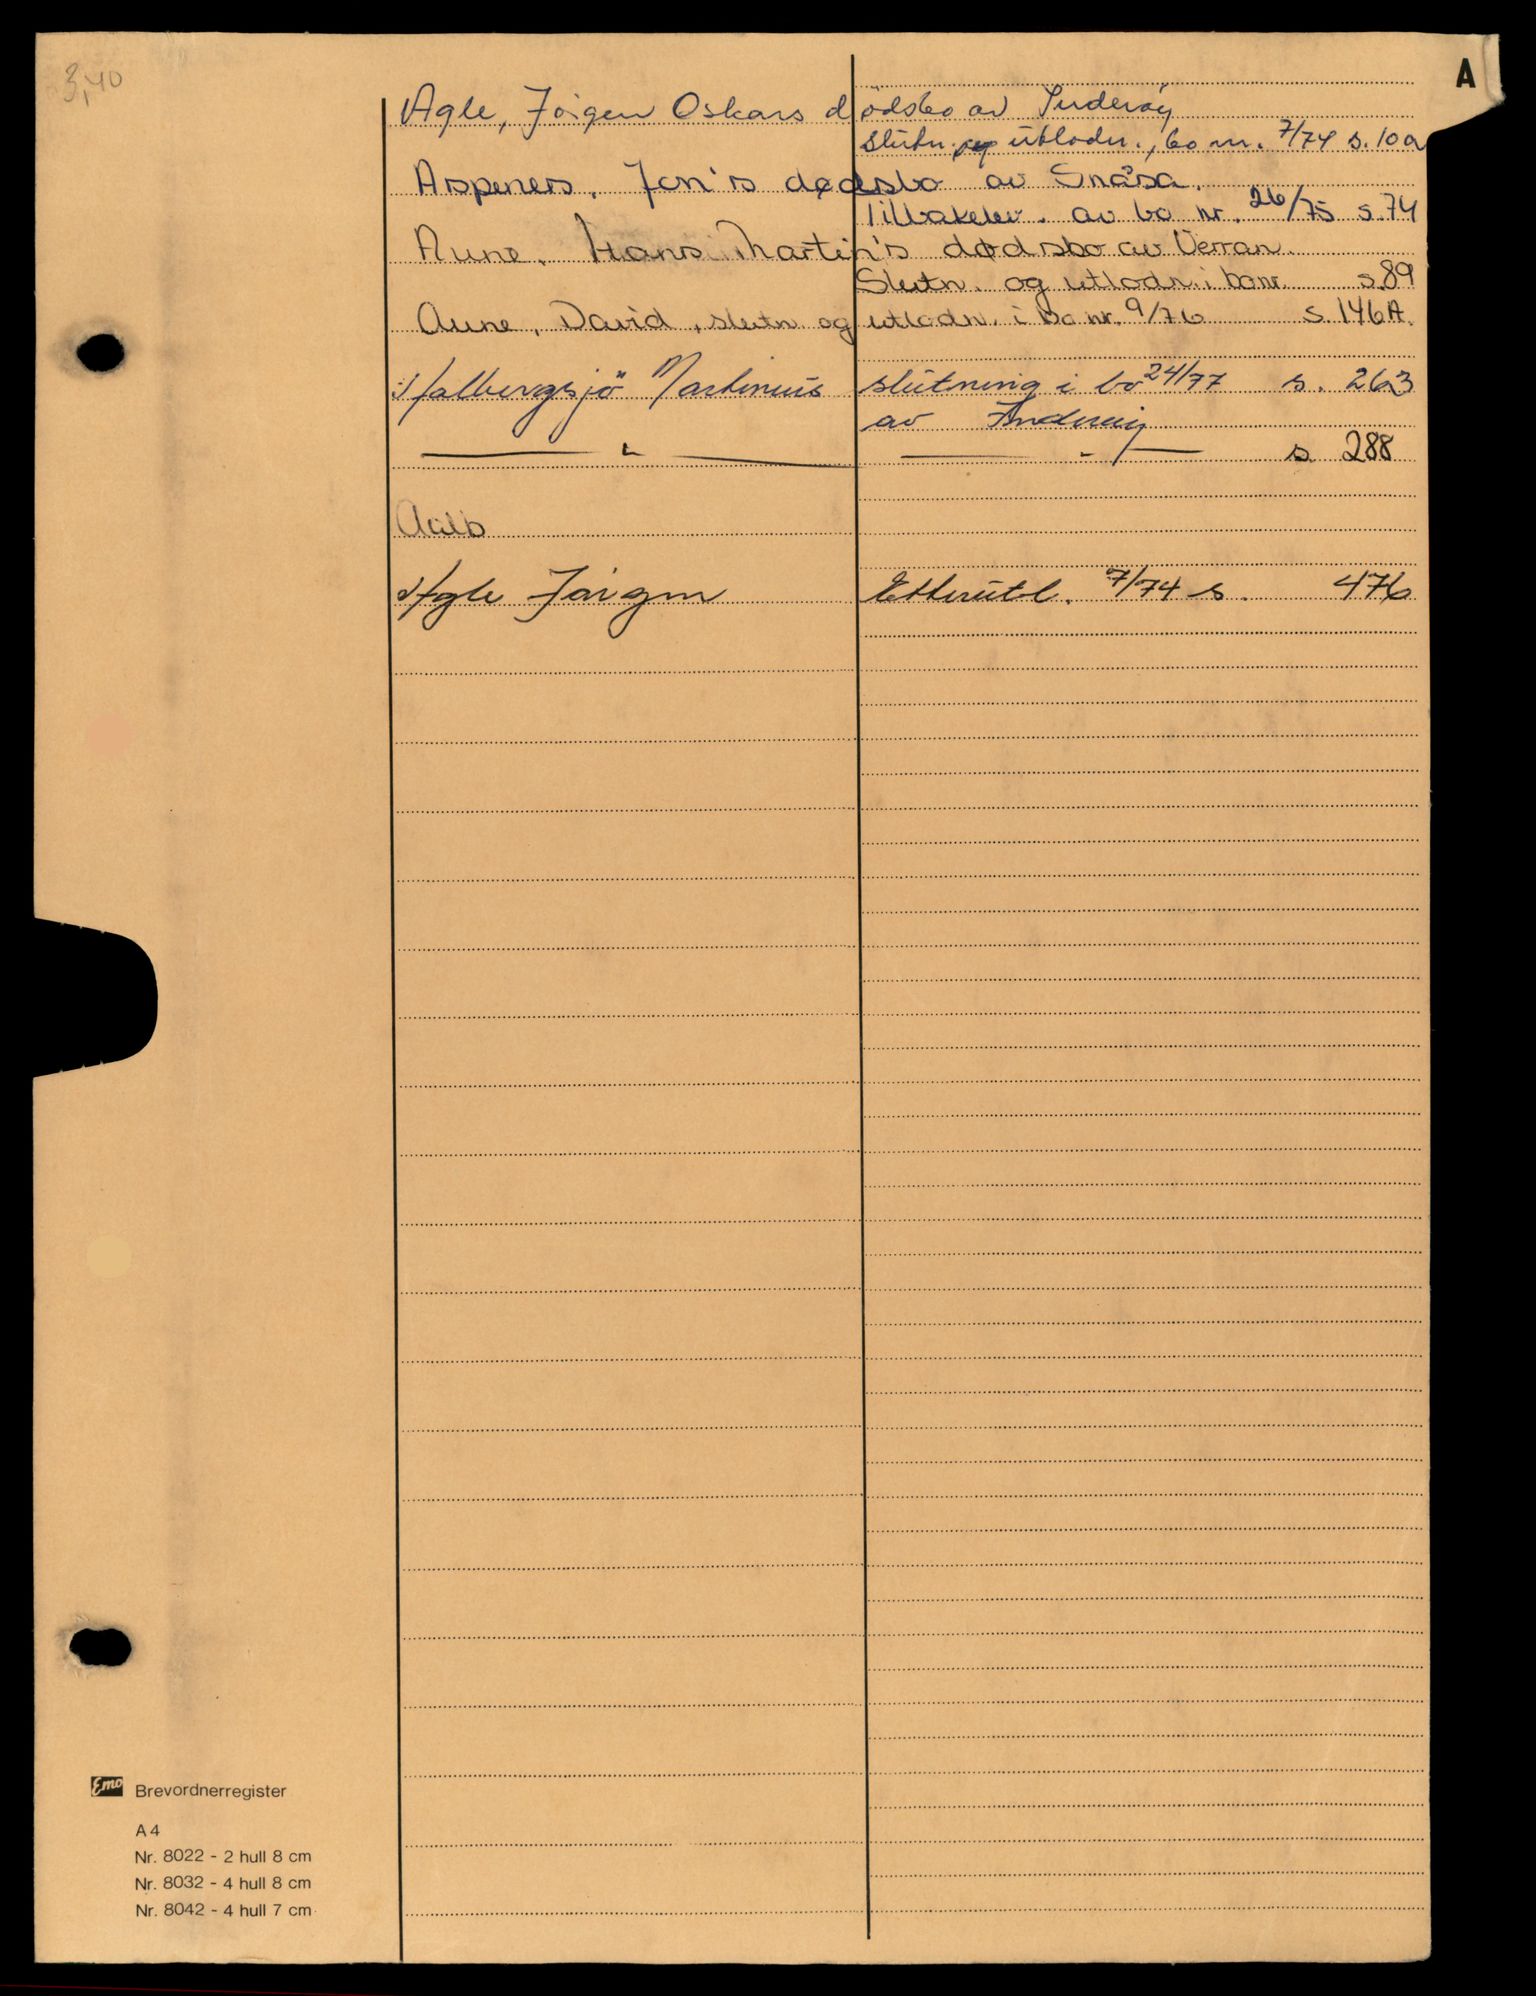 3,40
A
Agle, Jörgen Oskars dödsbo av Inderöy
slutn. og utlodn., bo nr. 7/74 s. 10 a
Aspenes, Jon's dødsbo av Snåsa.
Tilbakelev. av bo nr. 26/75 s. 74
Aune, Hans Martin's dødsbo av Verran.
Slutn. og utlodn. i bo nr. s. 89
Aune, David, slutn og utlodn. i Bo nr. 9/76 s. 146 A.
Aalbergsjö Martinius slutning i bo 24/77 s. 263
av
— " — — " — s. 288
Aalb
Agle Jörgen Etterutl. 7/74 s. 476
Emo Brevordnerregister
A 4
Nr. 8022 - 2 hull 8 cm
Nr. 8032 - 4 hull 8 cm
Nr. 8042 - 4 hull 7 cm